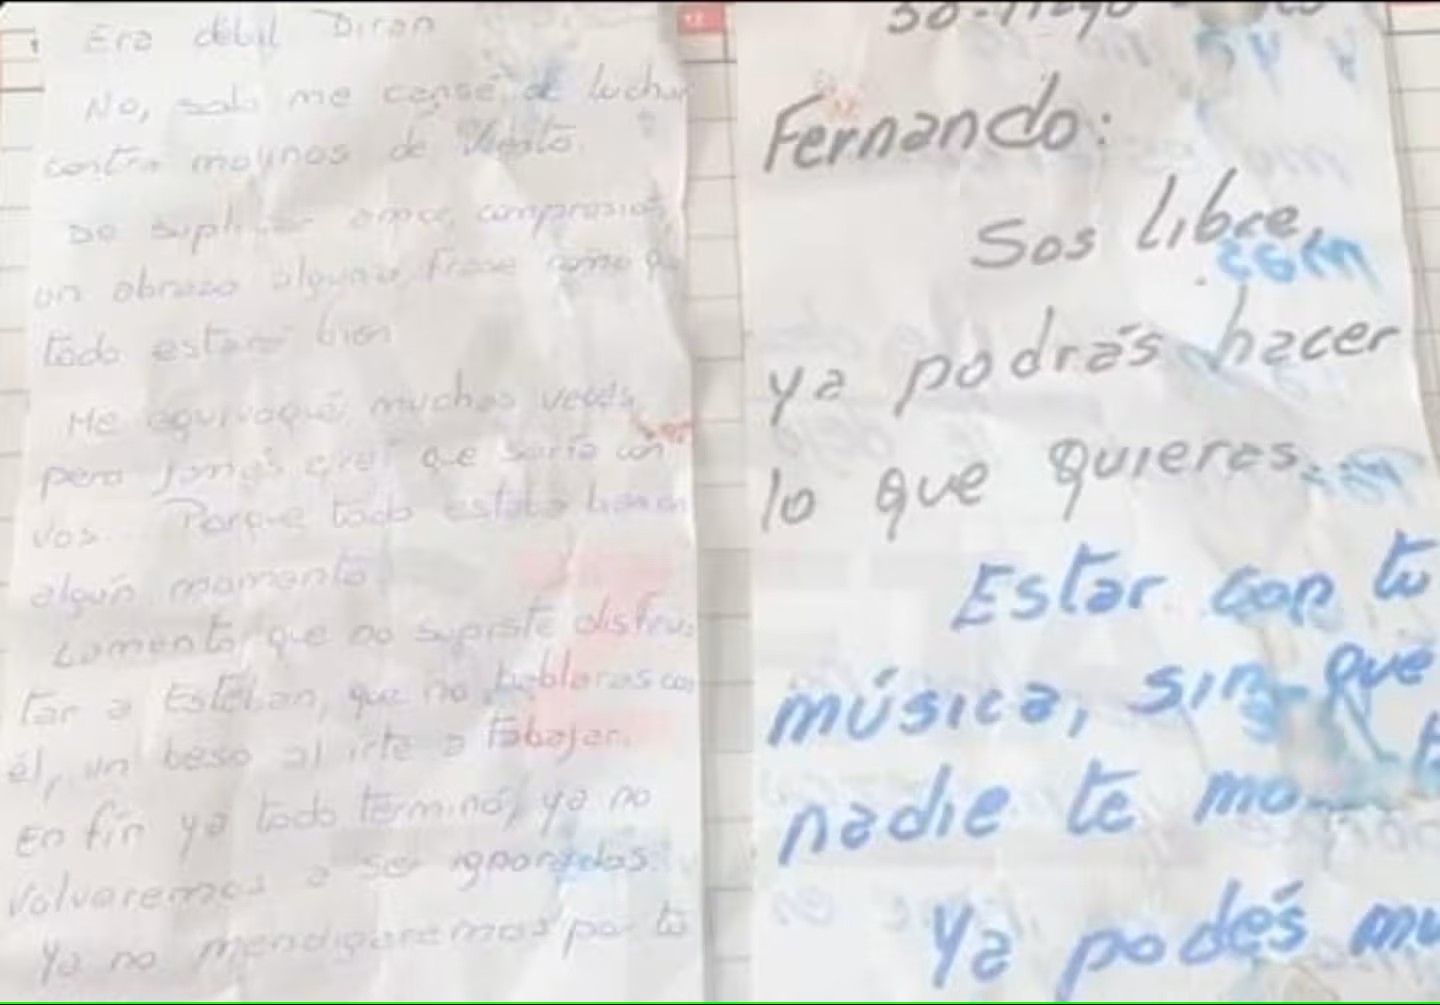 Era débil Diran
No, solo me cansé de luchar
contra molinos de Viento.
De suplicar amor, comprasión,
un abrazo alguna frase como q
todo estará bien
Me equivoqué, muchas veces,
pero jamás creí que sería con
vos... Porque todo estaba bien en
algún momento
Lamento que no supiste disfru
tar a Esteban, que no hablaras con
él, un beso al irte a tabajar.
En fin ya todo terminó, ya no
volveremos a ser ignorados.
Ya no mendigaremos por tu
30-Mayo
Fernando:
Sos libre,
ya podrás hacer
lo que quieras...
Estar con tu
música, sin que
nadie te mo
Ya podés mu